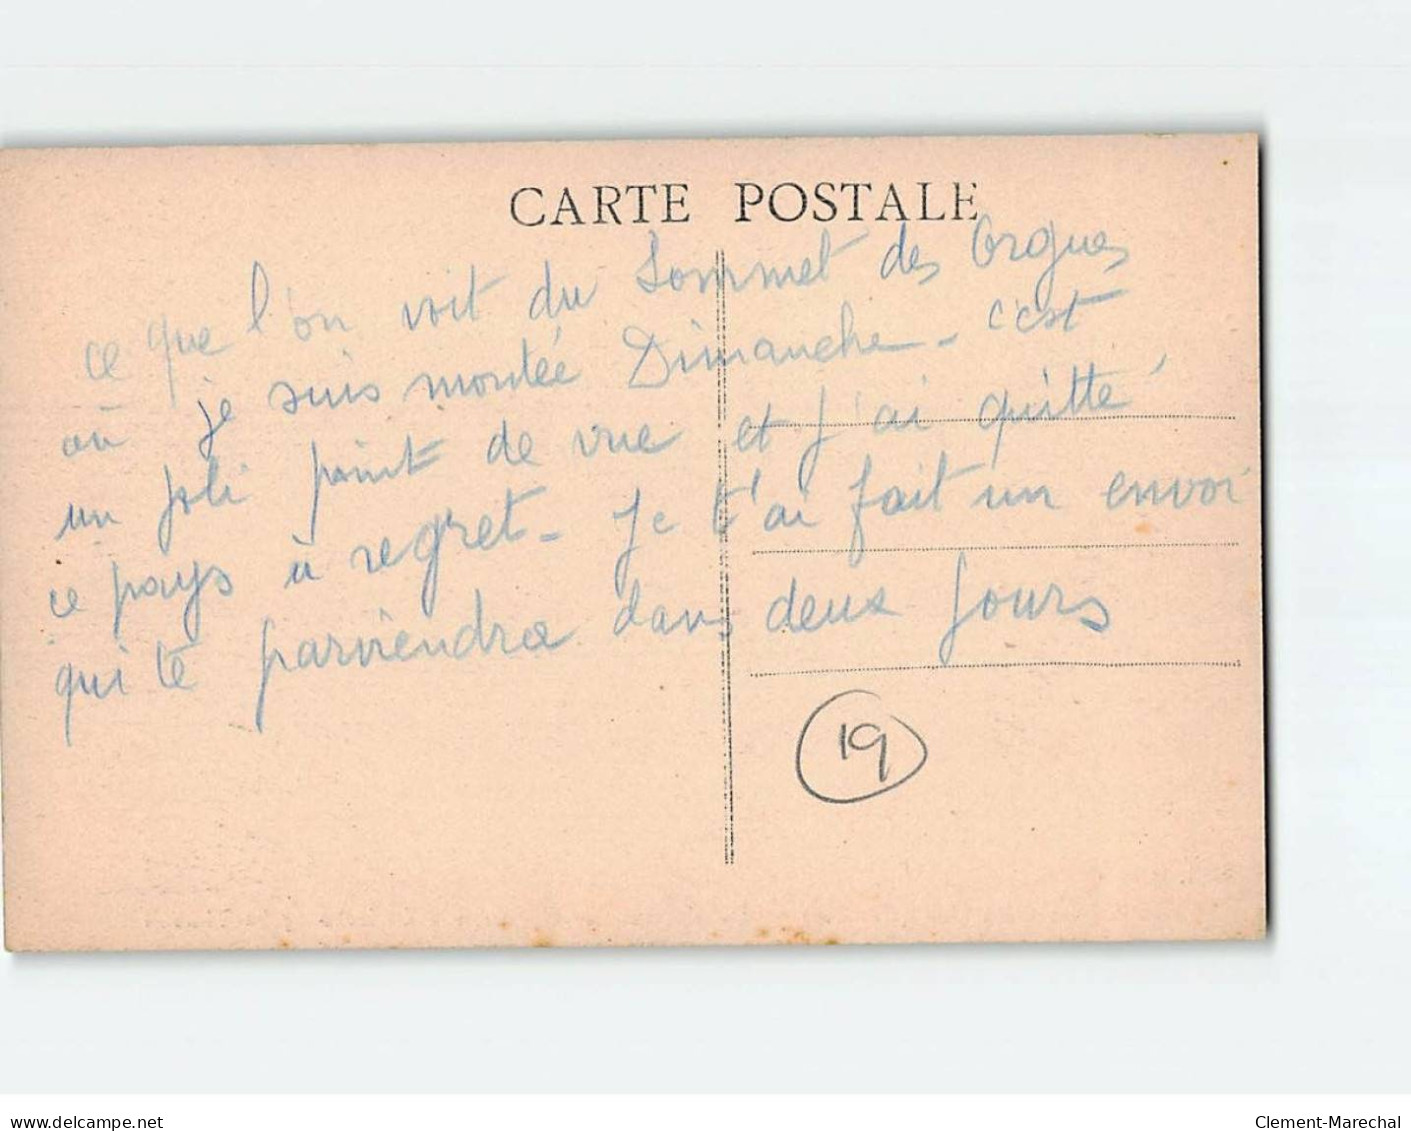 CARTE POSTALE
ce que l'on voit du Sommet des Orgues
où je suis montée Dimanche - c'est
un joli point de vue et j'ai quitté
ce pays à regret - Je t'ai fait un envoi
qui te parviendra dans deux jours
19
delcampe.net
Clement-Marechal